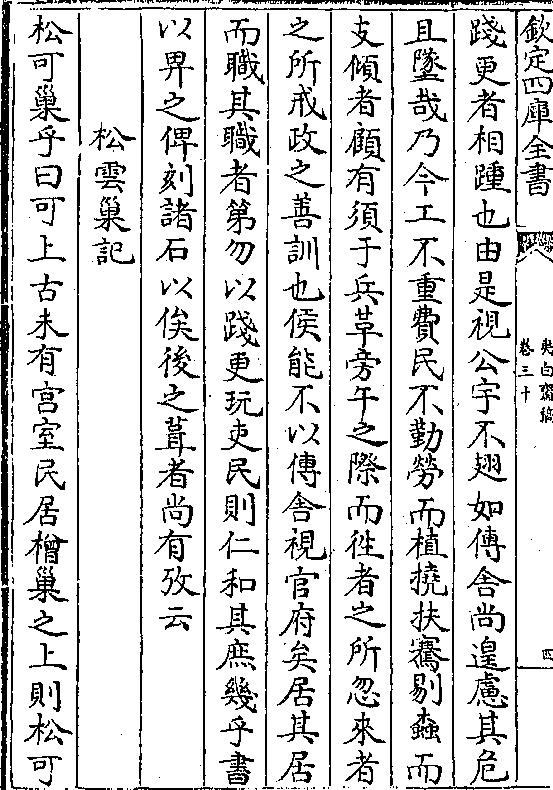 欽定四庫全書
夷白齋稿
卷三十
四
踐更者相踵也由是視公宇不翅如傳舍尚遑慮其危
且墜哉乃今工不重費民不勤勞而植撓扶騫剔蠹而
支傾者顧有須于兵革旁午之際而徃者之所忽來者
之所戒政之善訓也侯能不以傳舍視官府矣居其居
而職其職者第勿以踐更玩吏民則仁和其庶幾乎書
以畀之俾刻諸石以俟後之葺者尚有攷云
松雲巢記
松可巢乎曰可上古未有宫室民居橧巢之上則松可